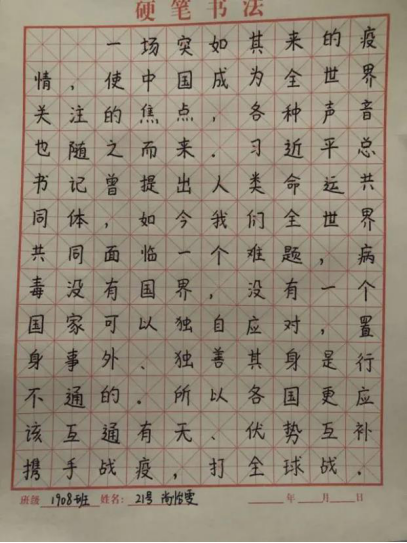 硬笔书法
一场突如其来的疫
情，使中国成为全世界
关注的焦点，各种声音
也随之而来．习近平总
书记曾提出人类命运共
同体，如今我们全世界
共同面临一个难题，病
毒没有国界，没有一个
国家可以独自应对，置
身事外、独善其身是行
不通的．所以各国更应
该互通有无、优势互补
携手战疫，打全球战．
班级 1908班 姓名：21号 尚怡雯 年 月 日